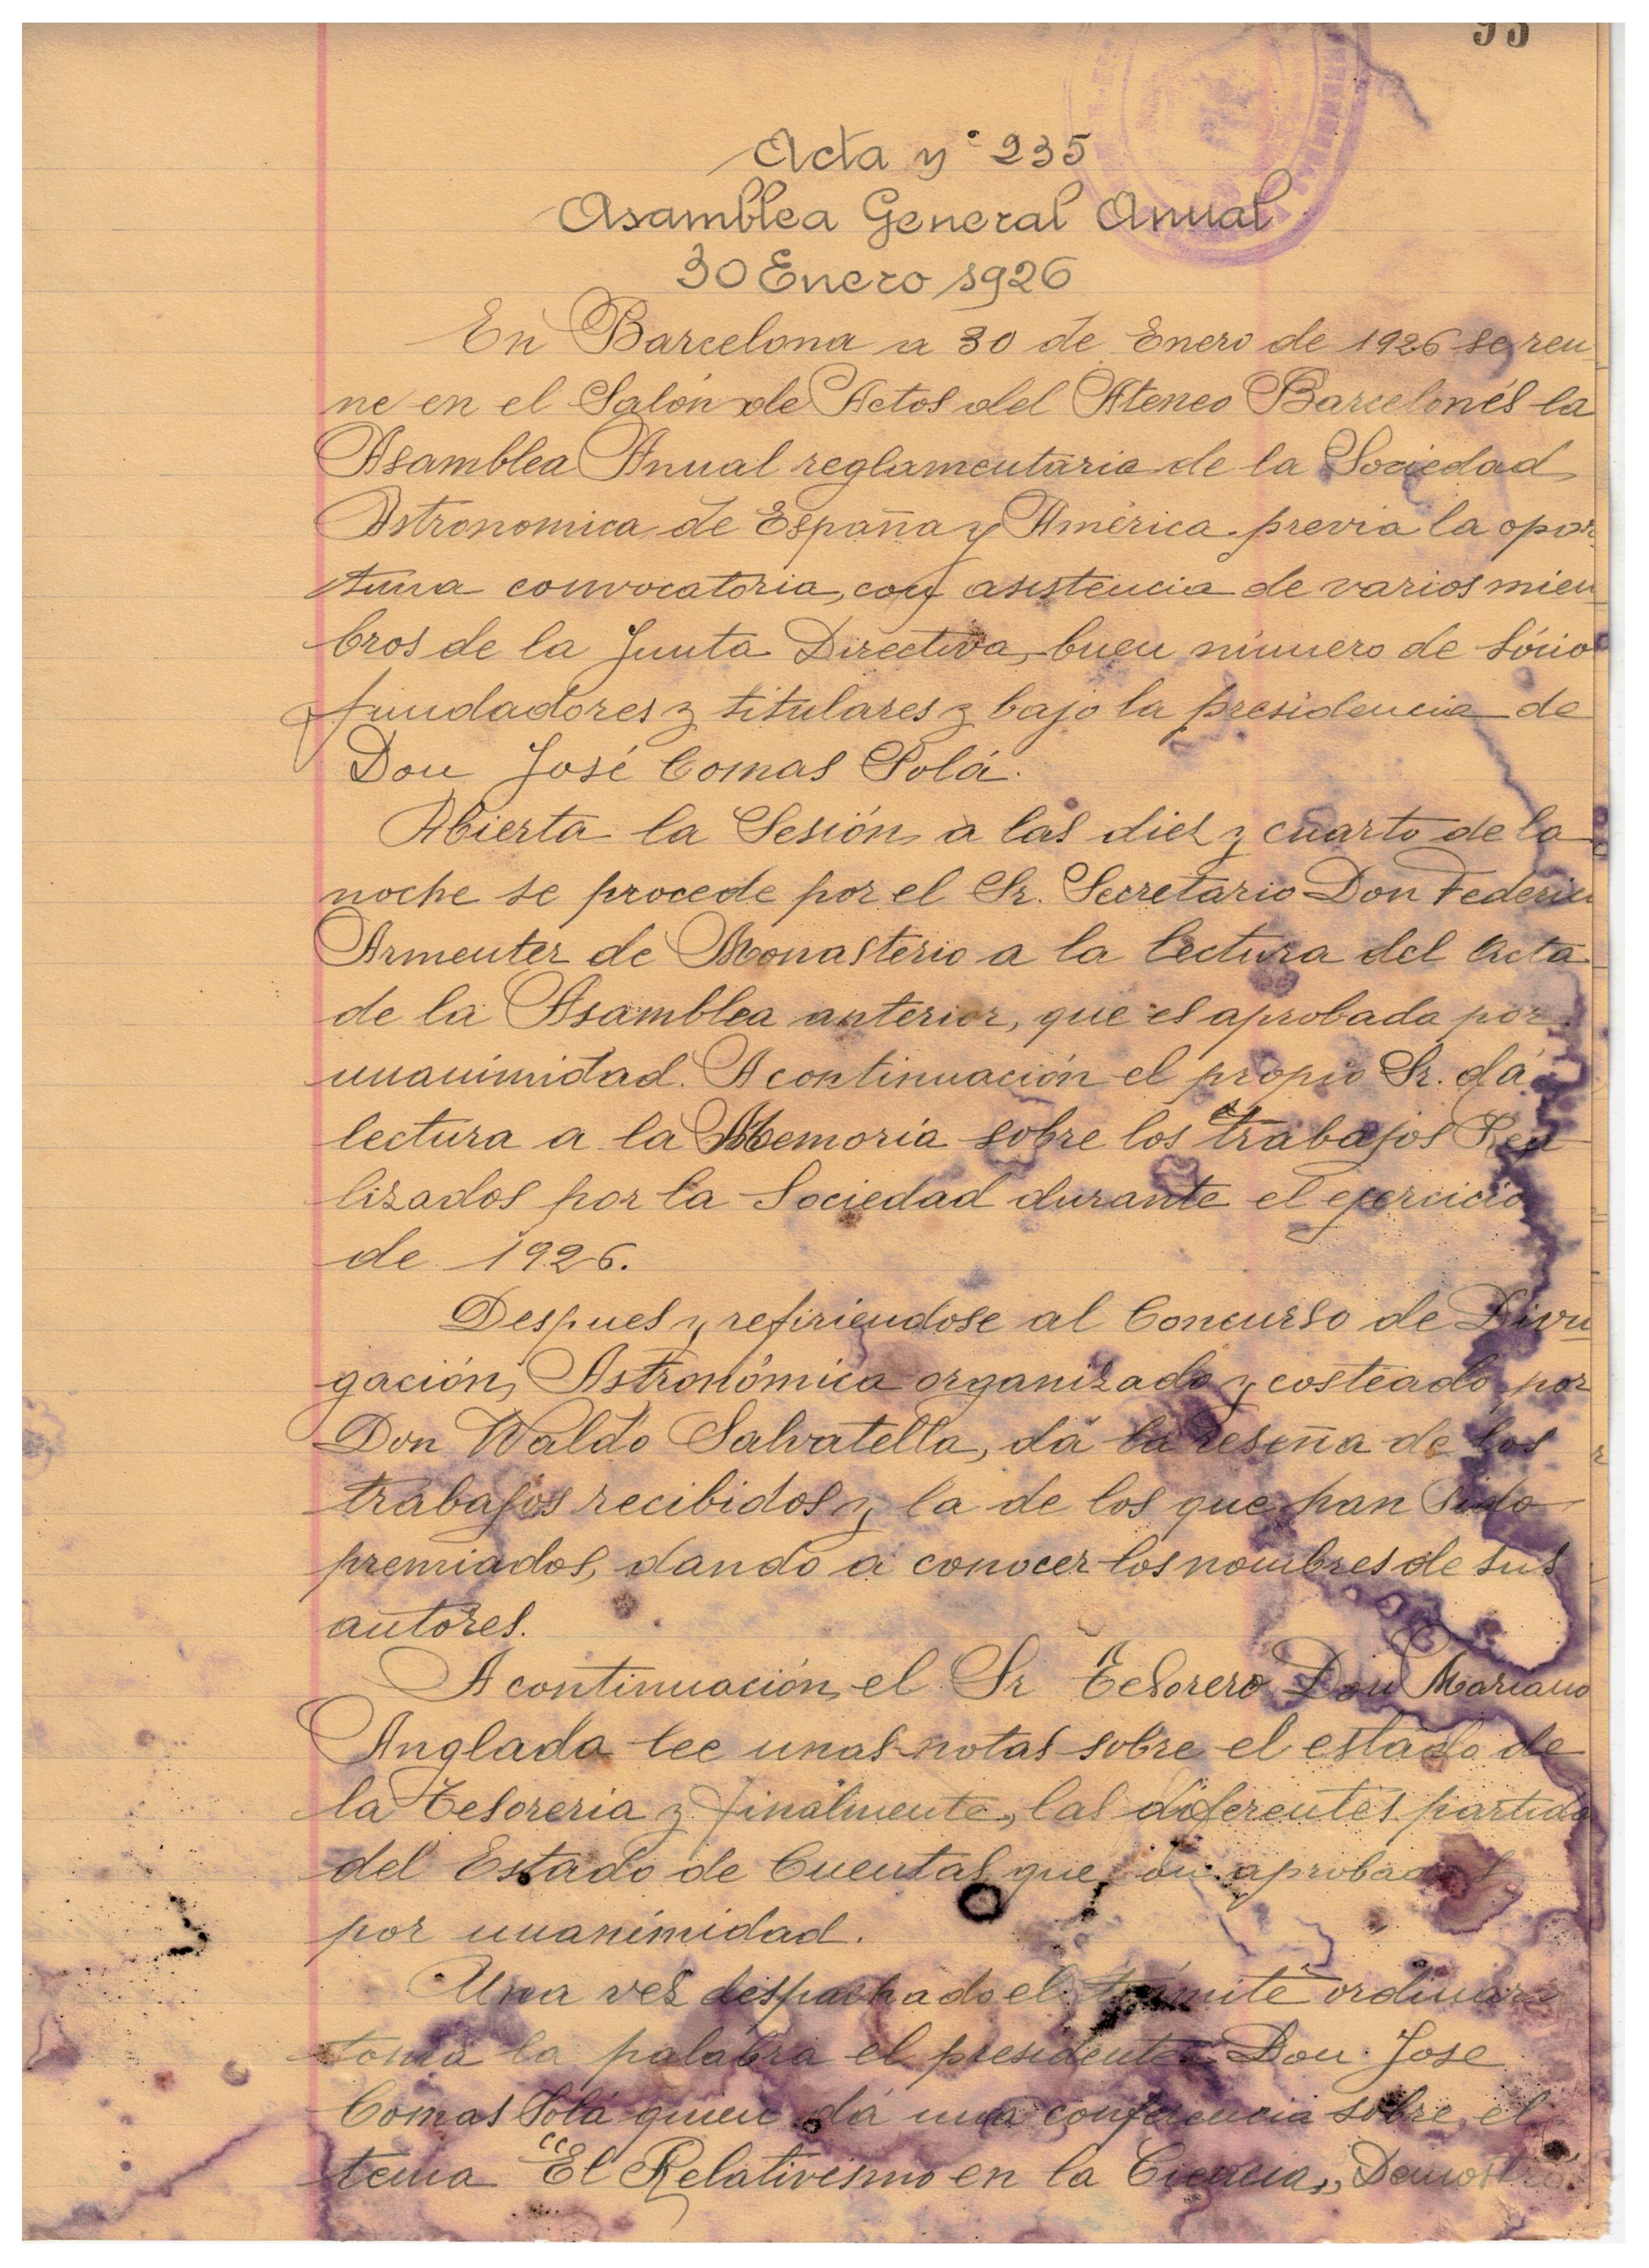 95
Acta nº 235
Asamblea General Anual
30 Enero 1926
En Barcelona a 30 de Enero de 1926 se reu
ne en el Salón de Actos del Ateneo Barcelonés la
Asamblea Anual reglamentaria de la Sociedad
Astronomica de España y América previa la opor
tuna convocatoria, con asistencia de varios miem
bros de la Junta Directiva, buen número de sócio
fundadores y titulares y bajo la presidencia de
Don José Comas Solá.
Abierta la Sesión a las diez y cuarto de la
noche se procede por el Sr. Secretario Don Federico
Armenter de Monasterio a la lectura del Acta
de la Asamblea anterior, que es aprobada por
unanimidad. A continuación el propio Sr. dá
lectura a la Memoria sobre los trabajos Rea
lizados por la Sociedad durante el ejercicio
de 1926.
Despues y refiriendose al Concurso de Divu
gación Astronómica organizado y costeado por
Don Waldo Salvatella, dá la reseña de los
trabajos recibidos y la de los que han sido
premiados, dando a conocer los nombres de sus
autores.
A continuación el Sr Tesorero Don Mariano
Anglada lee unas notas sobre el estado de
la Tesoreria y finalmente, las diferentes partida
del Estado de Cuentas que aprobadas
por unanimidad.
Una vez despachado el trámite ordinar
toma la palabra el presidente Don Jose
Comas Solá quien dá una conferencia sobre el
tema "El Relativismo en la Ciencia„ Demost